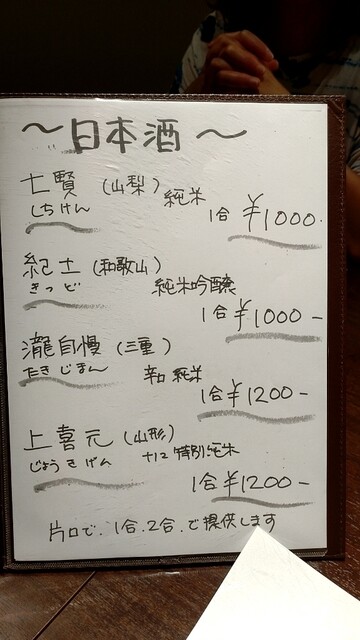 ～日本酒～
七賢 (山梨) 純米
しちけん
1合 ¥1000.
紀土 (和歌山)
きっど 純米吟醸
1合 ¥1000-
瀧自慢 (三重)
たきじまん 辛口 純米
1合 ¥1200-
上喜元 (山形)
じょうきげん +12 特別純米
1合 ¥1200-
片口で、1合、2合、で提供します